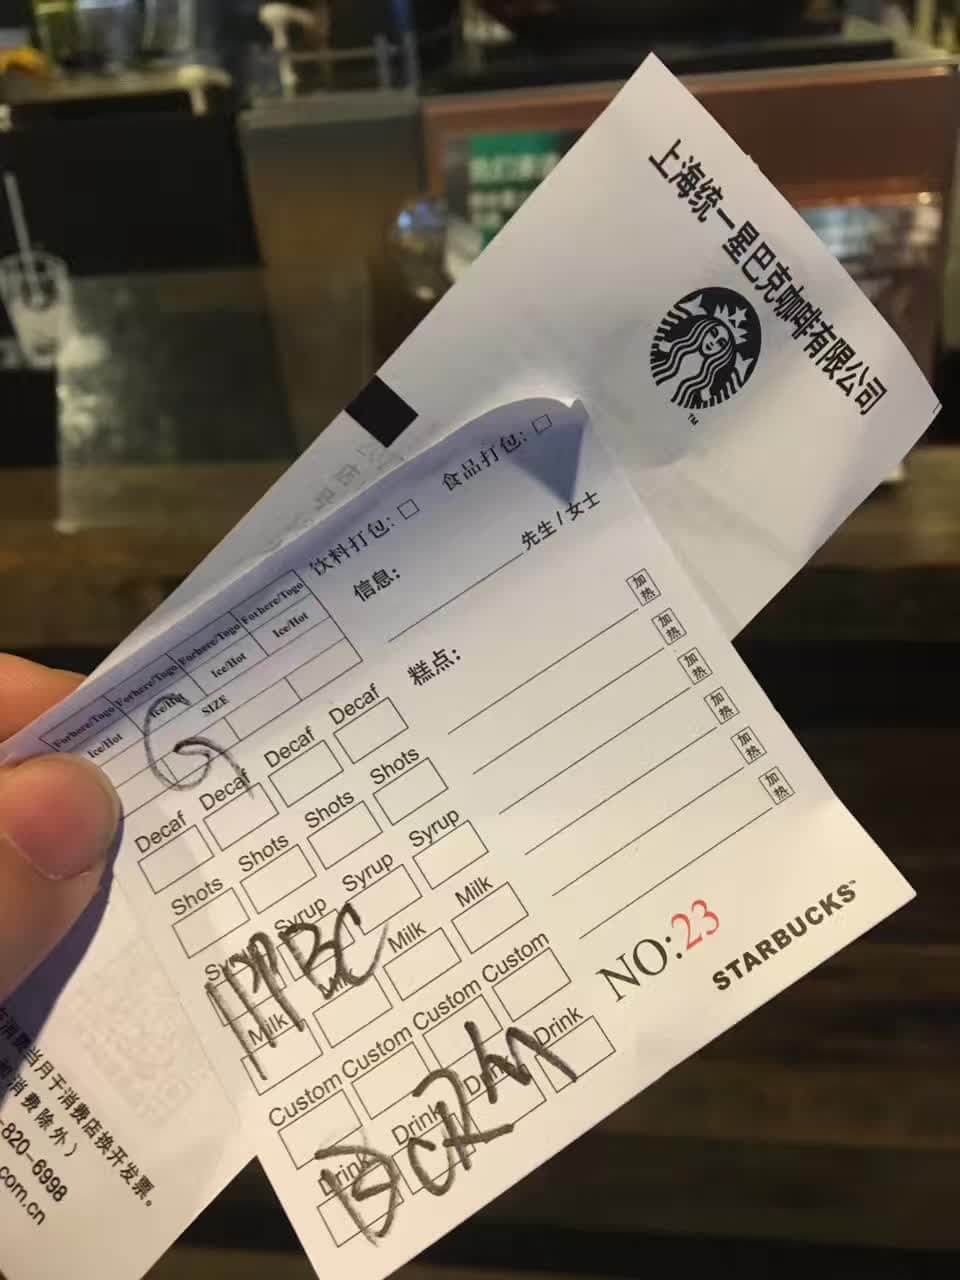 上海统一星巴克咖啡有限公司
TM
饮料打包:
食品打包:
信息:
先生/女士
糕点:
加热
加热
加热
加热
加热
加热
Forhere/Togo Forhere/Togo Forhere/Togo Forhere/Togo
Ice/Hot Ice/Hot Ice/Hot Ice/Hot
SIZE
G
Decaf Decaf Decaf Decaf
Shots Shots Shots Shots
Syrup Syrup Syrup Syrup
Milk Milk Milk Milk
Custom Custom Custom Custom
Drink Drink Drink Drink
NO:23
STARBUCKS™
当月于消费店换开发票。
消费除外)
820-6998
com.cn